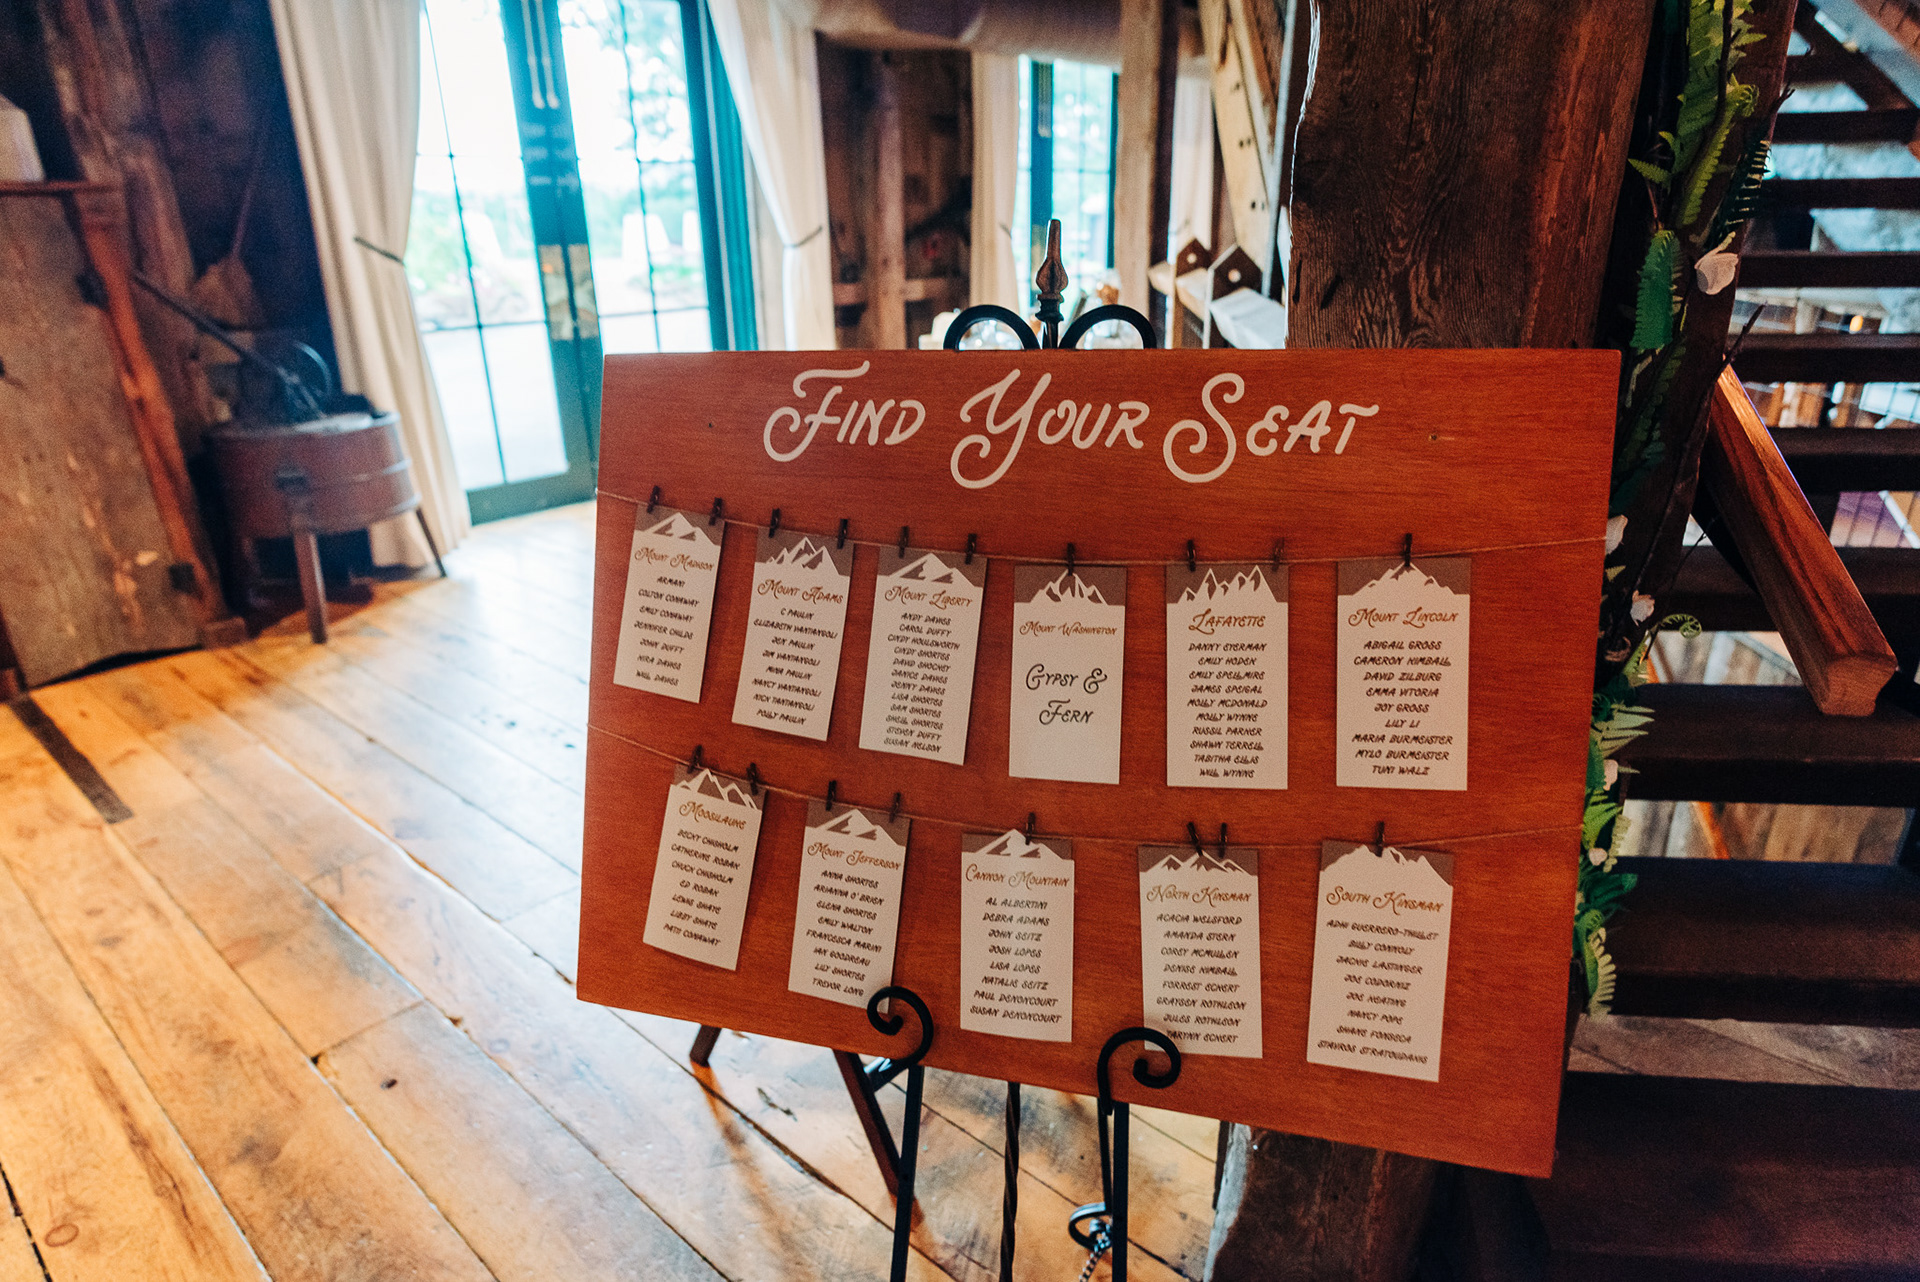 Find Your Seat
Mount Madison
Armani
Colton Conaway
Emily Conaway
Jennifer Childs
John Duffy
Kira Davies
Will Davies
Mount Adams
C Paulin
Elizabeth Vantangoli
Jen Paulin
Jim Vantangoli
Mina Paulin
Nancy Vantangoli
Rick Vantangoli
Polly Paulin
Mount Liberty
Andy Davies
Carol Duffy
Cindy Houlsworth
Cindy Shortes
David Shockey
Janice Davies
Jenny Davies
Lisa Shortes
Sam Shortes
Shell Shortes
Steven Duffy
Susan Nelson
Mount Washington
Gypsy &
Fern
Lafayette
Danny Eyerman
Emily Hodek
Emily Spellmire
James Speigal
Molly McDonald
Molly Wynne
Russil Parker
Shawn Terrell
Tabitha Ellis
Will Wynne
Mount Lincoln
Abigail Gross
Cameron Kimball
David Zilburg
Emma Vitoria
Joy Gross
Lily Li
Maria Burmeister
Mylo Burmeister
Tuni Walz
Moosilauke
Becky Chisholm
Catherine Roban
Chuck Chisholm
Ed Roban
Lewis Shaye
Libby Shaye
Pati Conaway
Mount Jefferson
Anna Shortes
Arianna O'Brien
Elena Shortes
Emily Walton
Francesca Marini
Ian Goodreau
Lily Shortes
Trevor Long
Cannon Mountain
Al Albertini
Debra Adams
John Seitz
Josh Lopes
Lisa Lopes
Natalie Seitz
Paul Denoncourt
Susan Denoncourt
North Kinsman
Acacia Welsford
Amanda Stern
Corey McMullen
Denise Kimball
Forrest Eckert
Graysen Rothleon
Jules Rothleon
Tarynn Eckert
South Kinsman
Adhi Guerrero-Thillet
Billy Connoly
Jackie Lastinger
Joe Codorniz
Joe Keating
Nancy Pope
Shane Fonseca
Stavros Stratoudakis